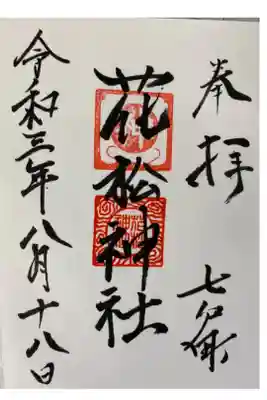 奉拝
七戸
花松神社
令和三年八月十八日